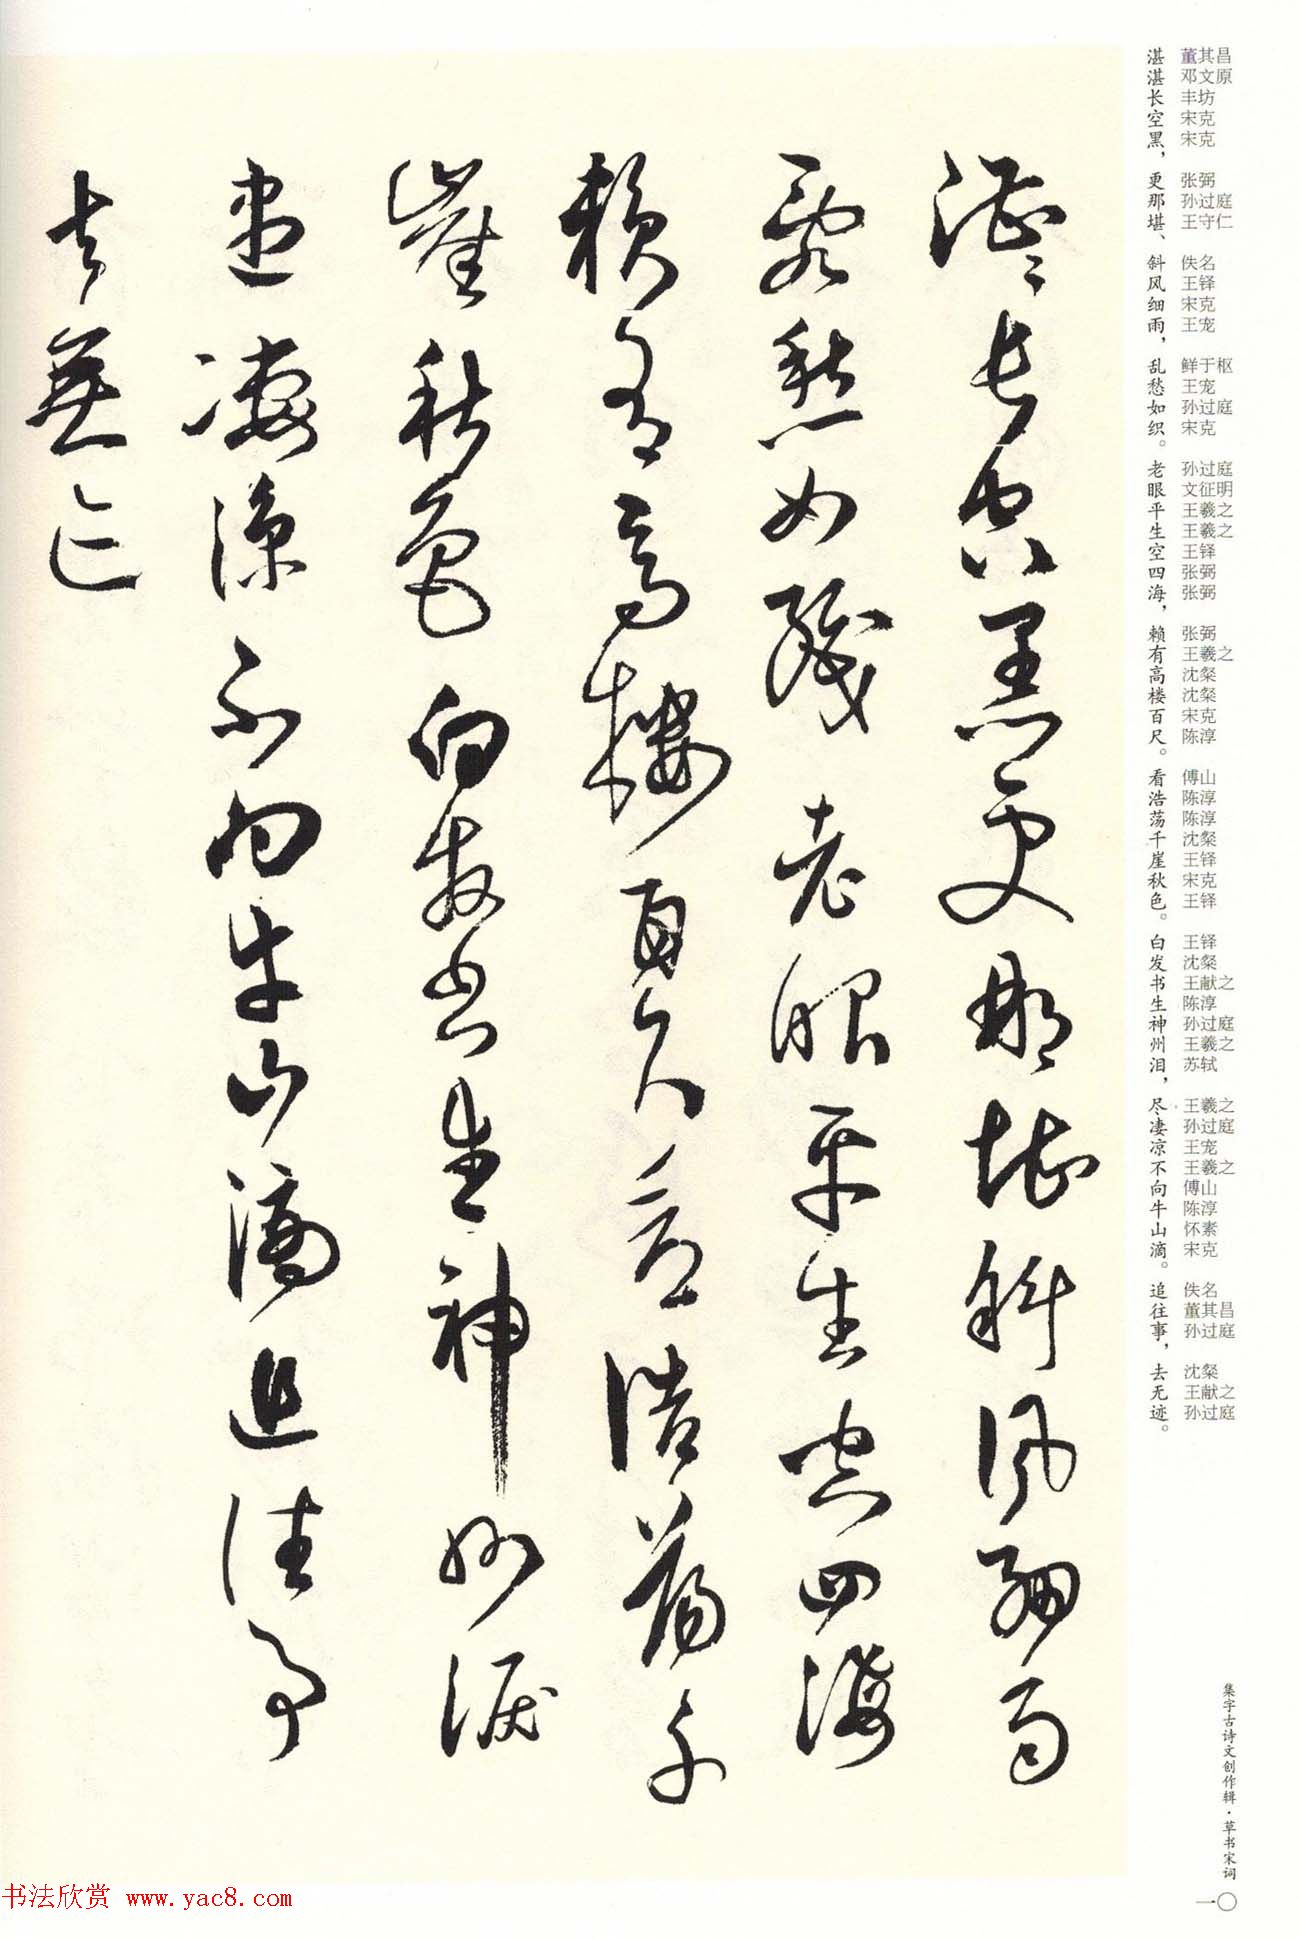 湛湛长空黑，更那堪、斜风细雨，乱愁如织。老眼平生空四海，赖有高楼百尺。看浩荡千崖秋色。白发书生神州泪，尽凄凉不向牛山滴。追往事，去无迹。
董其昌 邓文原 丰坊 宋克 宋克 张弼 孙过庭 王守仁 佚名 王铎 宋克 王宠 鲜于枢 王宠 孙过庭 宋克 孙过庭 文征明 王羲之 王羲之 王铎 张弼 张弼 张弼 王羲之 沈粲 沈粲 宋克 陈淳 傅山 陈淳 陈淳 沈粲 王铎 宋克 王铎 王铎 沈粲 王献之 陈淳 孙过庭 王羲之 苏轼 王羲之 孙过庭 王宠 王羲之 傅山 陈淳 怀素 宋克 佚名 董其昌 孙过庭 沈粲 王献之 孙过庭
湛〻長空黑更那堪斜風細雨
亂愁如織老眼平生空四海
賴有高樓百尺看浩蕩千
崖秋色白髮書生神州淚
盡凄涼不向牛山滴追往事
去無迹
集字古诗文创作辑·草书宋词
一〇
书法欣赏 www.yac8.com